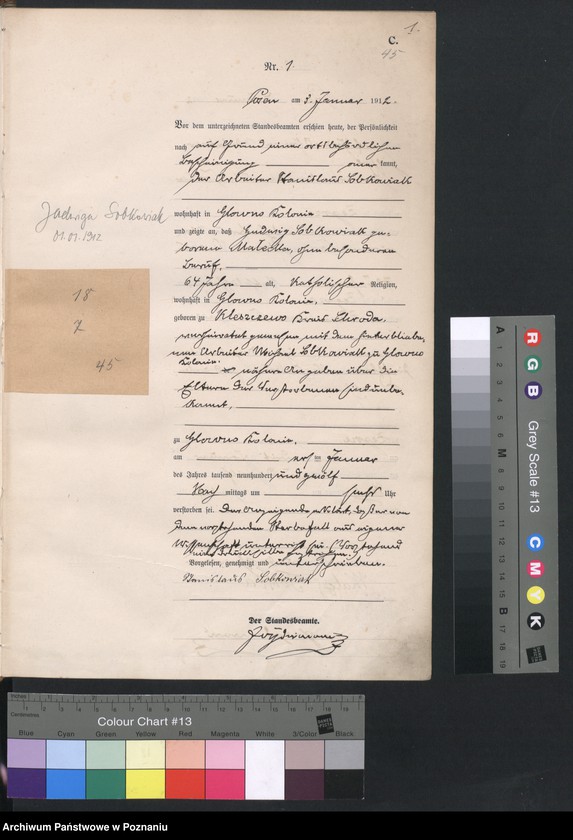 1.
C.
45
Nr. 1
Posen am 3. Januar 1912.
Vor dem unterzeichneten Standesbeamten erschien heute, der Persönlichkeit
nach auf Grund einer ortsbehördlichen
Bescheinigung kannt,
der Arbeiter Stanislaus Sobkowiak
Jadwiga Sobkowiak
01.01.1912
wohnhaft in Glowno Kolonie
und zeigte an, daß Sobkowiak ge-
borene Malecka, ohne besonderen
Beruf,
64 Jahre alt, katholischer Religion,
wohnhaft in Glowno Kolonie,
geboren zu Kleszczewo Kreis Schroda,
verheiratet gewesen mit dem hinterbliebe-
nen Arbeiter Michael Sobkowiak zu Glowno
Kolonie.
nähere Angaben über die
Eltern der Verstorbenen sind unbe-
kannt,
18
7
45
zu Glowno Kolonie,
am ersten Januar
des Jahres tausend neunhundert und zwölf
Nach mittags um sechs Uhr
verstorben sei. Der Anzeigende erklärt, daß er von
dem vorstehenden Sterbefall aus eigener
Wissenschaft unterrichtet sei. Vorstehend
Vorgelesen, genehmigt und unterschrieben.
Stanislaus Sobkowiak
Der Standesbeamte.
Inches
Centimetres
Colour Chart #13
Blue Cyen Green Yellow Red Magenta White 3/Color Black
Grey Scale #13
R G B
C M Y K
A 1 2 3 4 5 6 M 8 9 10 11 12 13 14 15 B 17 18 19
Archiwum Państwowe w Poznaniu